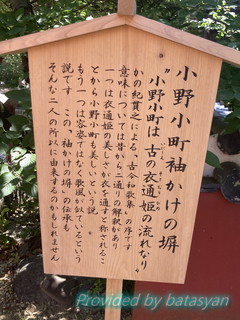 小野小町袖かけの塀
"小野小町は古の衣通姫の流れなり"
いにしえ
そとおりひめ
かの紀貫之による、古今和歌集の序です
意味については昔から二通りの解釈があり
一つは衣通姫の美しさが衣を通すと称されるこ
とから小野小町も美しいという説。
もう一つは容姿ではなく歌風が似ているという
説です この、袖かけの塀の伝承も
そんな二人の所以に由来するのかもしれません
Provided by batasyan